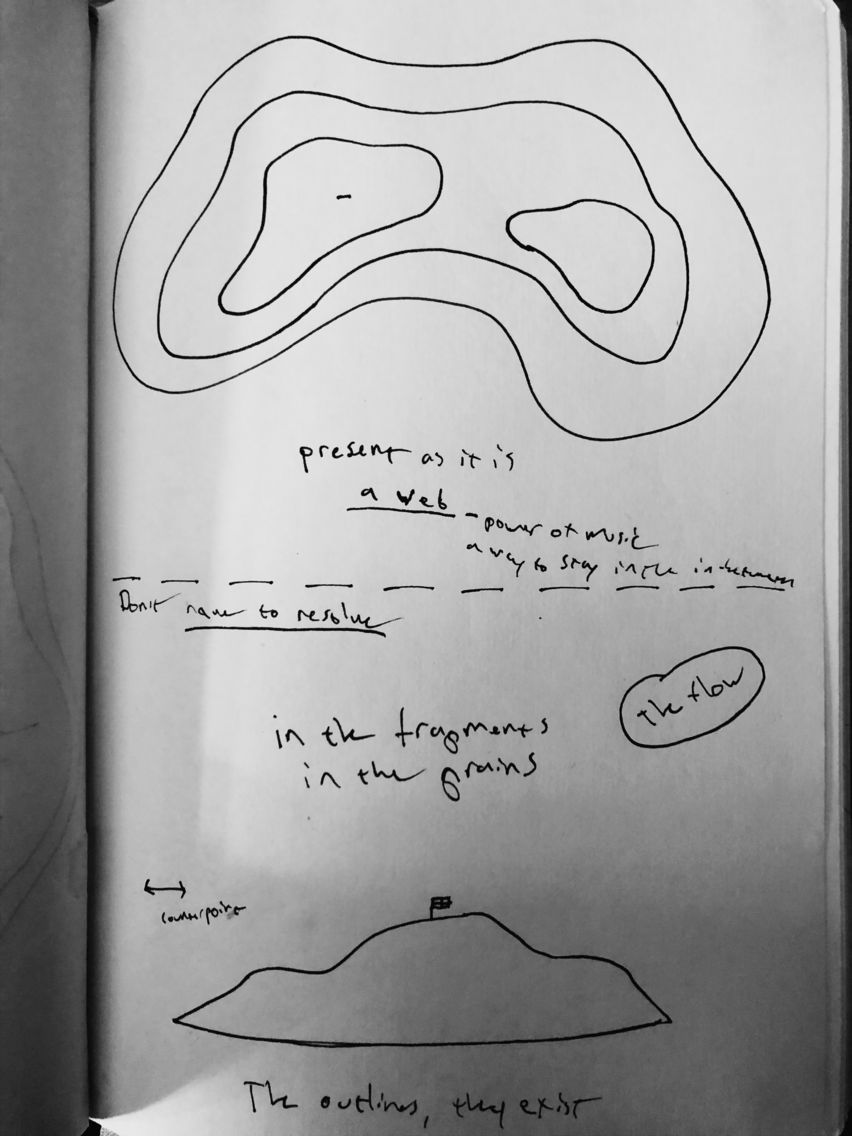 present as it is
a web - power of music
a way to stay in the in-between
Don't have to resolve
The flow
in the fragments
in the grains
counterpoint
The outlines, they exist